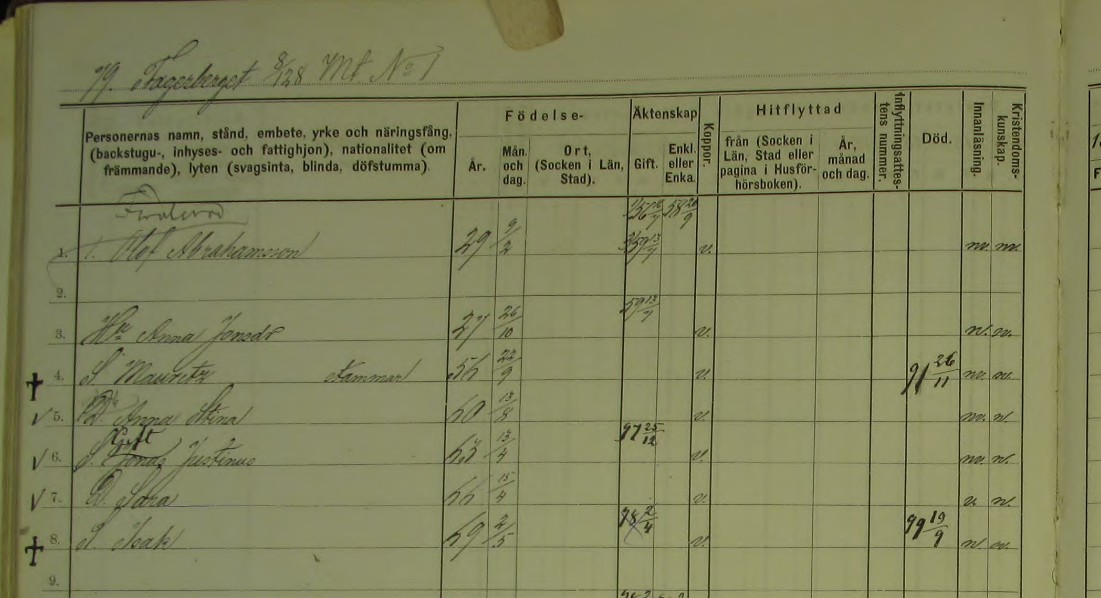 79. Fagerberget 8/128 Mt No 1
Personernas namn, stånd, embete, yrke och näringsfång, (backstugu-, inhyses- och fattighjon), nationalitet (om främmande), lyten (svagsinta, blinda, döfstumma).
Födelse-
År.
Mån. och dag.
Ort, (Socken i Län, Stad).
Äktenskap
Gift.
Enkl. eller Enka.
Koppor.
Hitflyttad
från (Socken i Län, Stad eller pagina i Husförhörsboken).
År, månad och dag.
Inflyttningsattestens nummer.
Död.
Innanläsning.
Kristendomskunskap.
58 26/9
1. Olof Abrahamsson 29 9/2 59 13/7 v.
2.
59 13/7
3. Anna Jonsdr 27 26/10 v.
† 4. S. Mauritz stammar 56 22/9 v. 91 26/11
√ 5. D. Anna Stina 60 13/8 v.
97 25/12
√ 6. S. Jonas Justinus 63 13/4 v.
√ 7. D. Sara 66 15/4 v.
98 2/4
† 8. S. Isak 69 2/5 v. 99 19/9
9.